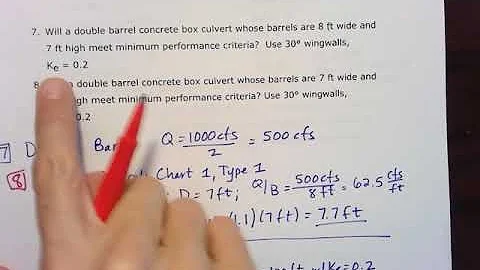 7. Will a double barrel concrete box culvert whose barrels are 8 ft wide and
7 ft high meet minimum performance criteria? Use 30° wingwalls,
Ke = 0.2
8 a double barrel concrete box culvert whose barrels are 7 ft wide and
high meet minimum performance criteria? Use 30° wingwalls,
0.2
7 D Bar Q = 1000cfs / 2 = 500 cfs
8 Chart 1, Type 1
D = 7ft, Q/B = 500cfs / 8ft = 62.5 cfs/ft
.1)(7ft) = 7.7ft
w/Ke = 0.2